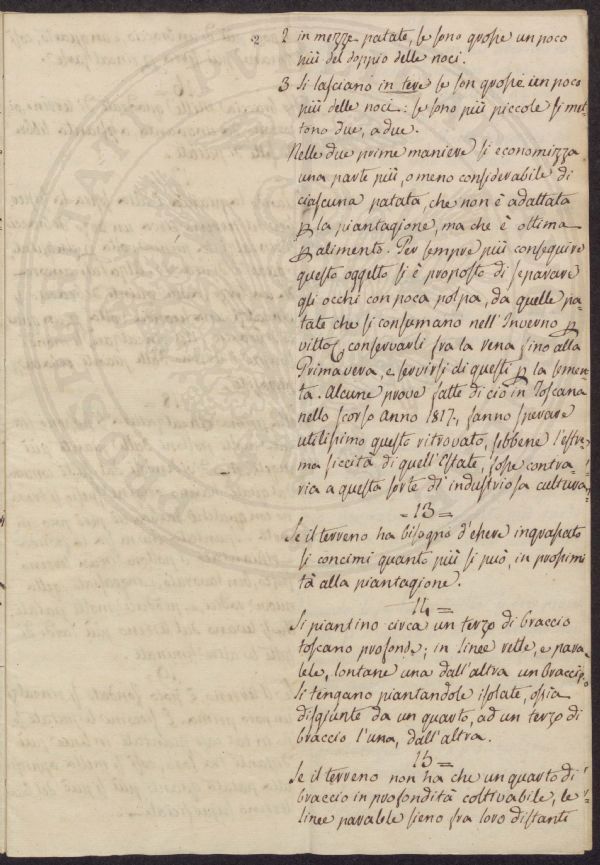 2 2 in mezze patate, se sono grosse un poco
più del doppio delle noci.
3 Si lasciano intere se son grosse un poco
più delle noci: se sono più piccole si met-
tono due, a due.
Nelle due prime maniere si economizza
una parte più, o meno considerabile di
ciascuna patata, che non è adattata
p la piantagione, ma che è ottima
p alimento. Per sempre più conseguire
questo oggetto si è proposto di separare
gli occhi con poca polpa, da quelle pa-
tate che si consumano nell'Inverno p
vitto, conservarli fra la rena fino alla
Primavera, e servirsi di questi p la semen-
ta. Alcune prove fatte di ciò in Toscana
nello scorso anno 1817, fanno sperare
utilissimo questo ritrovato, sebbene l'estre-
ma siccità di quell'Estate, fosse contra-
ria a questa sorte di industriosa cultura.
= 13 =
Se il terreno ha bisogno d'essere ingrassato
si concimi quanto più si può, in prossimi
tà alla piantagione.
14 =
Si piantino circa un terzo di braccio
toscano profonde; in linee rette, e para-
lele, lontane una dall'altra un braccio,
si tengano piantandole isolate, ossia
disgiunte da un quarto, ad un terzo di
braccio l'una, dall'altra.
15 =
Se il terreno non ha che un quarto di
braccio in profondità coltivabile, le
linee paralele sieno fra loro distanti